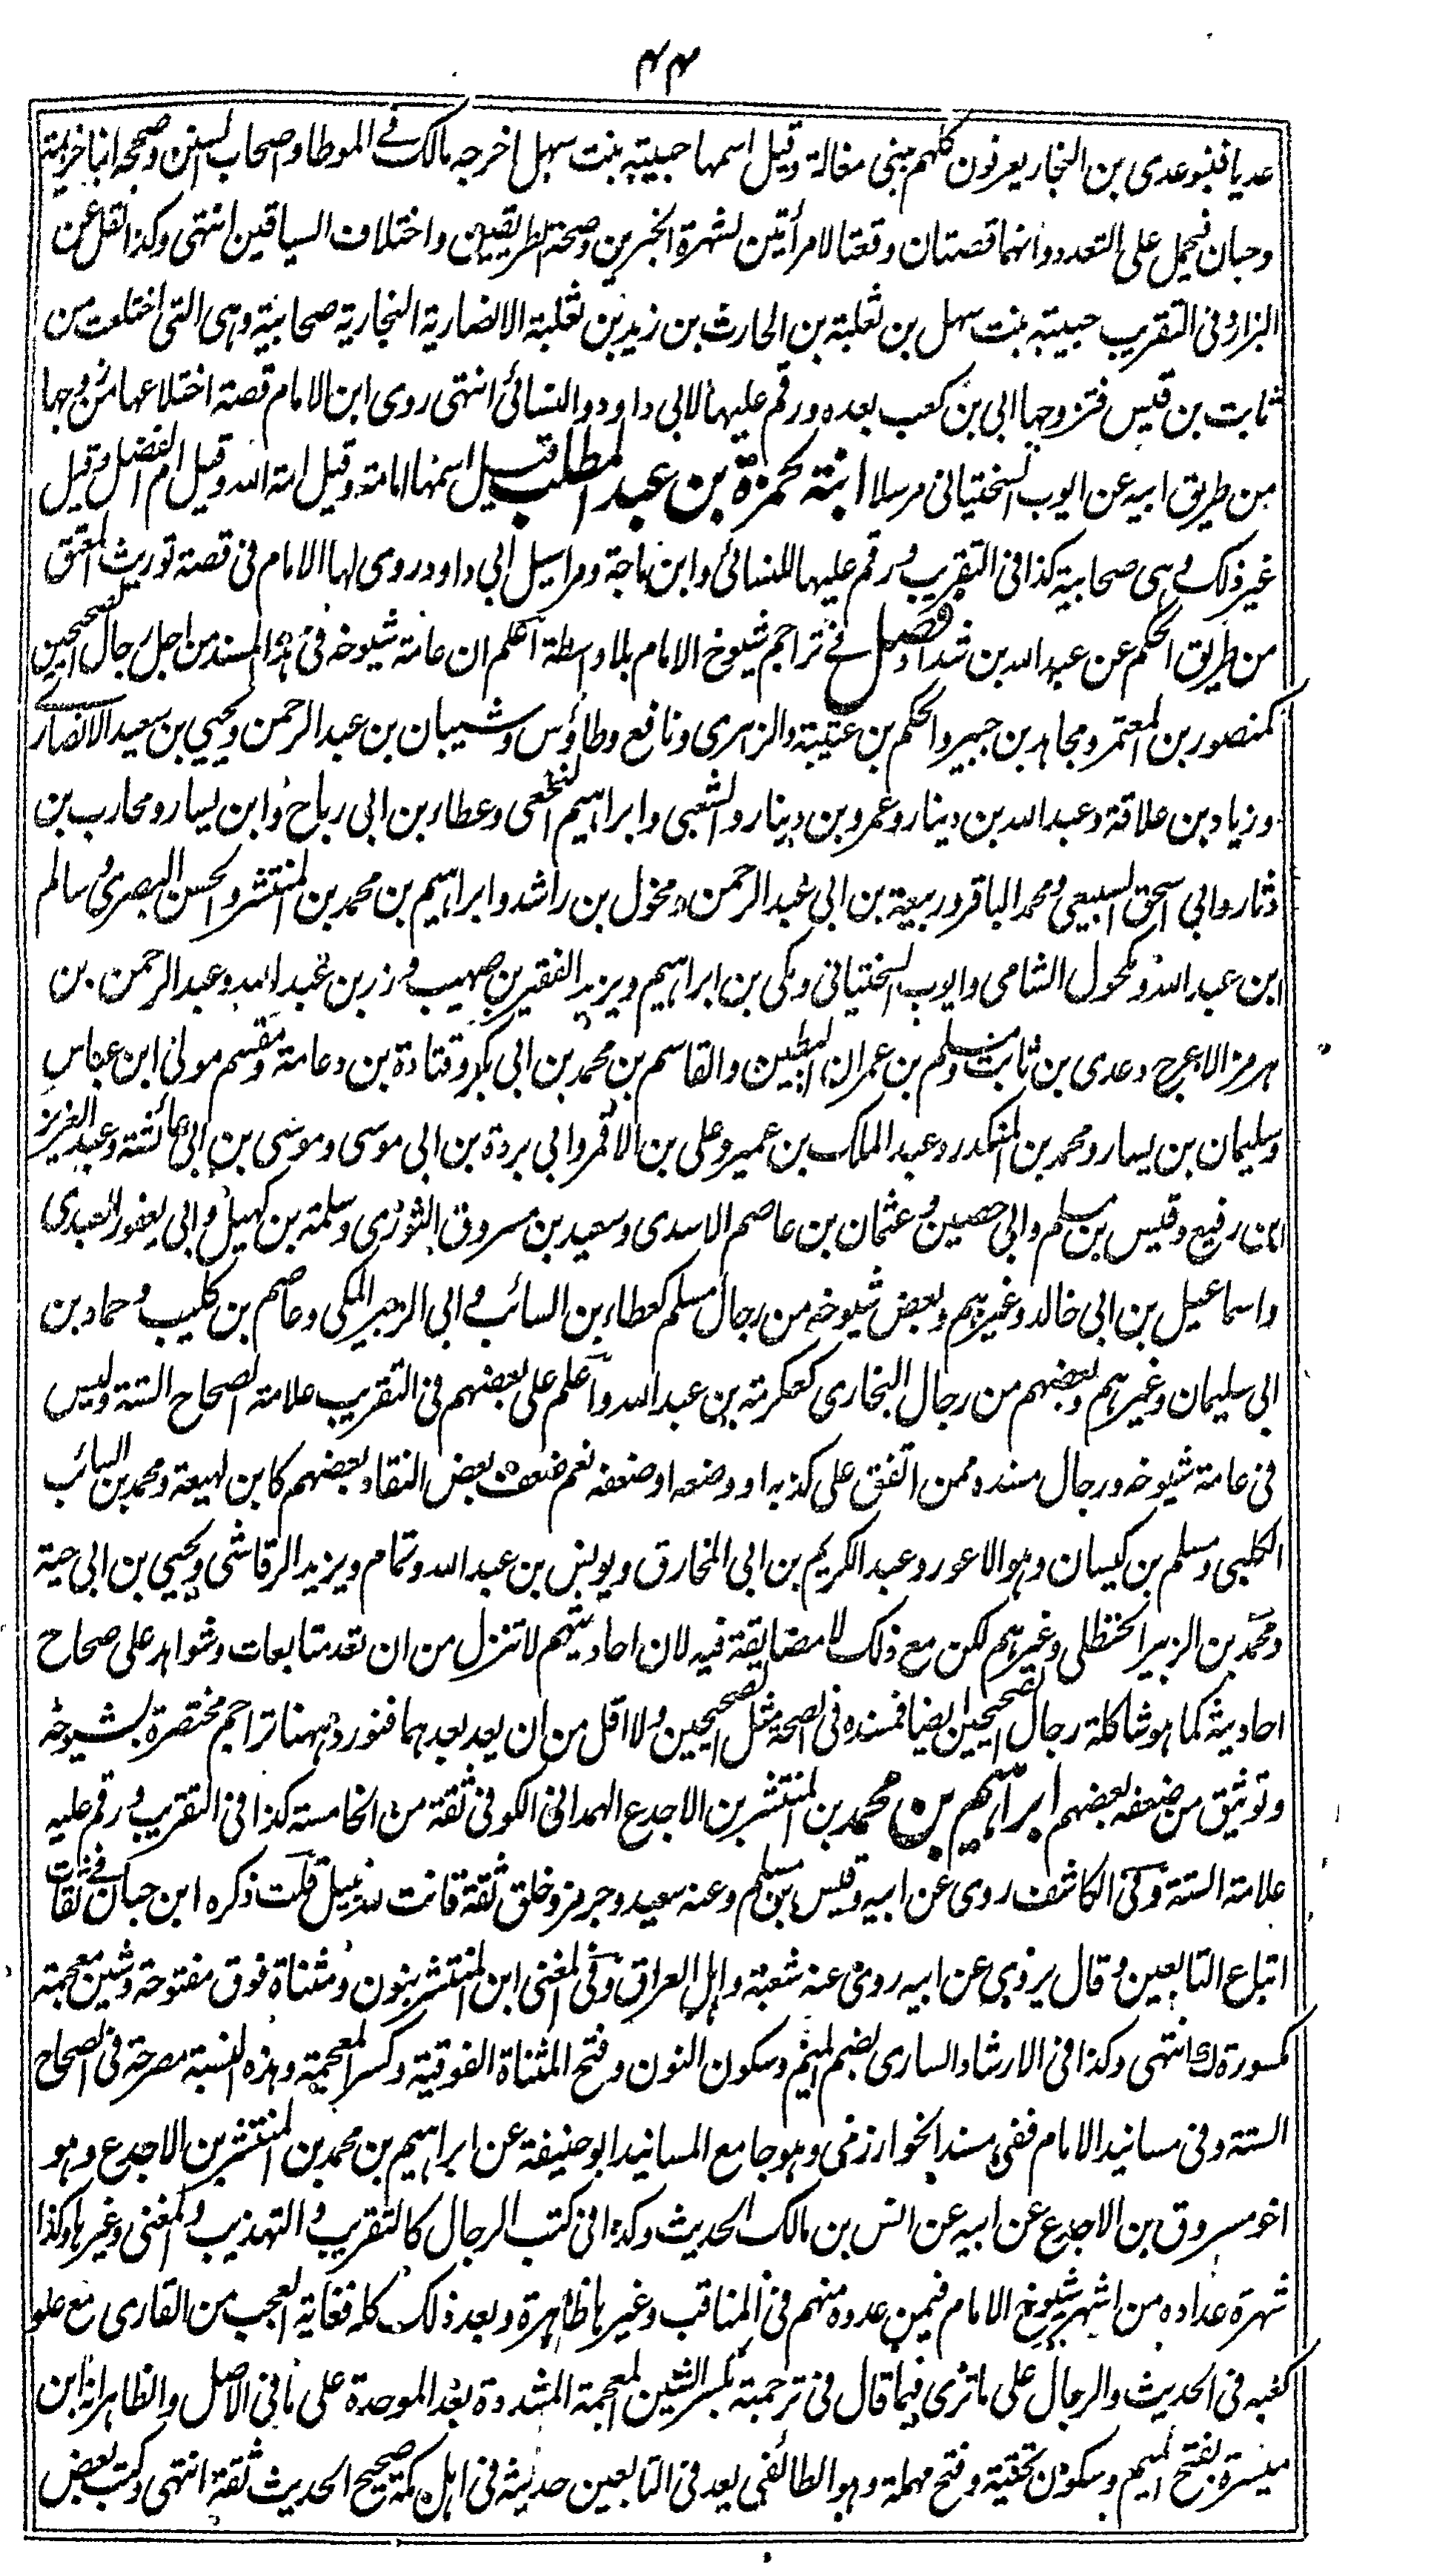 ۴۴
عديا فبنو عدى بن النجار يعرفون كلهم ببنى مغالة وقيل اسمها حبيبة بنت سهل اخرجه مالك فى الموطا واصحاب السنن وصححه ابنا خزيمة
وحبان فيحمل على التعدد وانهما قصتان وقعتا لامرأتين لشهرة الخبرين وصحة الطريقين واختلاف السياقين انتهى وكذا نقل عن
البزار وفى التقريب حبيبة بنت سهل بن ثعلبة بن الحارث بن زيد بن ثعلبة الانصارية النجارية صحابية وهى التى اختلعت من
ثابت بن قيس فتزوجها ابى بن كعب بعده ورقم عليها لابى داود والنسائى انتهى روى ابن الامام قصة اختلاعها من زوجها
من طريق ابيه عن ايوب السختيانى مرسلا ابنة حمزة بن عبد المطلب قيل اسمها امامة وقيل امة الله وقيل ام الفضل وقيل
غير ذلك وهى صحابية كذا فى التقريب ورقم عليها للنسائى وابن ماجة ومراسيل ابى داود روى لها الامام فى قصة توريث المعتق
من طريق الحكم عن عبد الله بن شداد فصل فى تراجم شيوخ الامام بلا واسطة اعلم ان عامة شيوخه فى هذا المسند من اجل رجال الصحيحين
كمنصور بن المعتمر ومجاهد بن جبير والحكم بن عتيبة والزهرى ونافع وطاؤس وشيبان بن عبد الرحمن ويحيى بن سعيد الانصارى
وزياد بن علاقة وعبد الله بن دينار وعمرو بن دينار والشعبى وابراهيم النخعى وعطاء بن ابى رباح وابن يسار ومحارب بن
دثار وابى اسحق السبيعى ومحمد الباقر وربيعة بن ابى عبد الرحمن ومخول بن راشد وابراهيم بن محمد بن المنتشر والحسن البصرى وسالم
ابن عبد الله ومكحول الشامى وايوب السختيانى ومكى بن ابراهيم ويزيد الفقير بن صهيب وزر بن عبد الله وعبد الرحمن بن
هرمز الاعرج وعدى بن ثابت ومسلم بن عمران البطين والقاسم بن محمد بن ابى بكر وقتادة بن دعامة ومقسم مولى ابن عباس
وسليمان بن يسار ومحمد بن المنكدر وعبد الملك بن عمير وعلى بن الاقمر وابى بردة بن ابى موسى وموسى بن ابى عائشة وعبد العزيز
ابن رفيع وقيس بن مسلم وابى حصين وعثمان بن عاصم الاسدى وسعيد بن مسروق الثورى وسلمة بن كهيل وابى يعفور العبدى
واسماعيل بن ابى خالد وغيرهم وبعض شيوخه من رجال مسلم كعطاء بن السائب وابى الزبير المكى وعاصم بن كليب وحماد بن
ابى سليمان وغيرهم وبعضهم من رجال البخارى كعكرمة بن عبد الله واعلم على بعضهم فى التقريب علامة الصحاح الستة وليس
فى عامة شيوخه ورجال مسنده ممن اتفق على كذبه او وضعه او ضعفه نعم ضعف بعض النقاد بعضهم كابن لهيعة ومحمد بن السائب
الكلبى ومسلم بن كيسان وهو الاعور وعبد الكريم بن ابى المخارق ويونس بن عبد الله وتمام ويزيد الرقاشى ويحيى بن ابى حية
ومحمد بن الزبير الحنظلى وغيرهم لكن مع ذلك لا مضايقة فيه لان احاديثهم لا تنزل من ان تعد متابعات وشواهد على صحاح
احاديثه كما هو شاكلة رجال الصحيحين ايضا فمسنده فى الصحة مثل الصحيحين ولا اقل من ان يعد بعدهما فنورد ههنا تراجم مختصرة لشيوخه
وتوثيق من ضعفه بعضهم ابراهيم بن محمد بن المنتشر بن الاجدع الهمدانى الكوفى ثقة من الخامسة كذا فى التقريب ورقم عليه
علامة الستة وفى الكاشف روى عن ابيه وقيس بن مسلم وعنه سعيد وجرمز وخلق ثقة قانت لله نبيل قلت ذكره ابن حبان فى ثقات
اتباع التابعين وقال يروى عن ابيه روى عنه شعبة واهل العراق وفى المغنى ابن المنتشر بنون ومثناة فوق مفتوحة وشين معجمة
مكسورة انتهى وكذا فى الارشاد السارى بضم الميم وسكون النون وفتح المثناة الفوقية وكسر المعجمة وهذه النسبة مصرحة فى الصحاح
الستة وفى مسانيد الامام ففى مسند الخوارزمى وهو جامع المسانيد ابو حنيفة عن ابراهيم بن محمد بن المنتشر بن الاجدع وهو
اخو مسروق بن الاجدع عن ابيه عن انس بن مالك الحديث وكذا فى كتب الرجال كالتقريب والتهذيب والمغنى وغيرها وكذا
شهرة عداده من اشهر شيوخ الامام فيمن عدوه منهم فى المناقب وغيرها ظاهرة وبعد ذلك كله فغاية العجب من القارى مع علو
كعبه فى الحديث والرجال على ما ترى فيما قال فى ترجمته بكسر الشين المعجمة المشددة بعد الموحدة على ما فى الاصل والظاهر انه ابن
ميسرة بفتح الميم وسكون تحتية وفتح مهملة وهو الطائفى يعد فى التابعين حديثه فى اهل مكة صحيح الحديث ثقة انتهى وكتب بعض